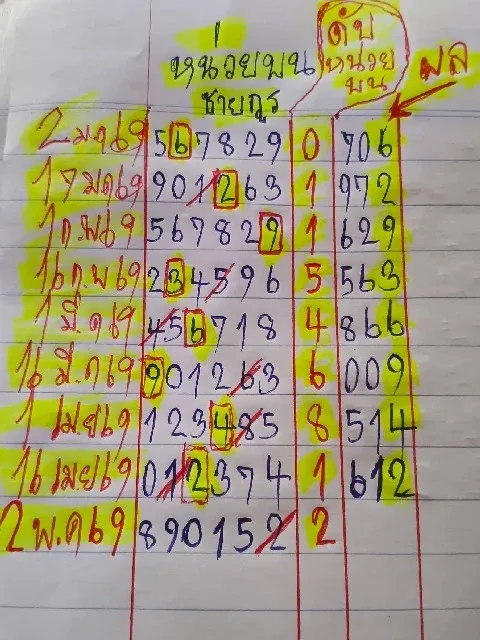 หน่วยบน
ชายกูร
ดับ
หน่วย
บน
ผล
2 ม.ค 69 567829 0 706
17 มค 69 901263 1 972
1 ก.พ 69 567829 1 629
16 ก.พ 69 234596 5 563
1 มี.ค 69 456718 4 866
16 มี.ค 69 901263 6 009
1 เมย 69 123485 8 514
16 เมย 69 012374 1 612
2 พ.ค 69 890152 2